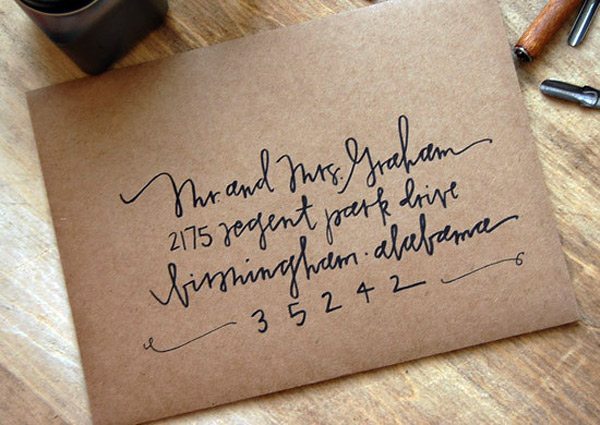 Mr. and Mrs. Graham
2175 regent park drive
birmingham. alabama
35242